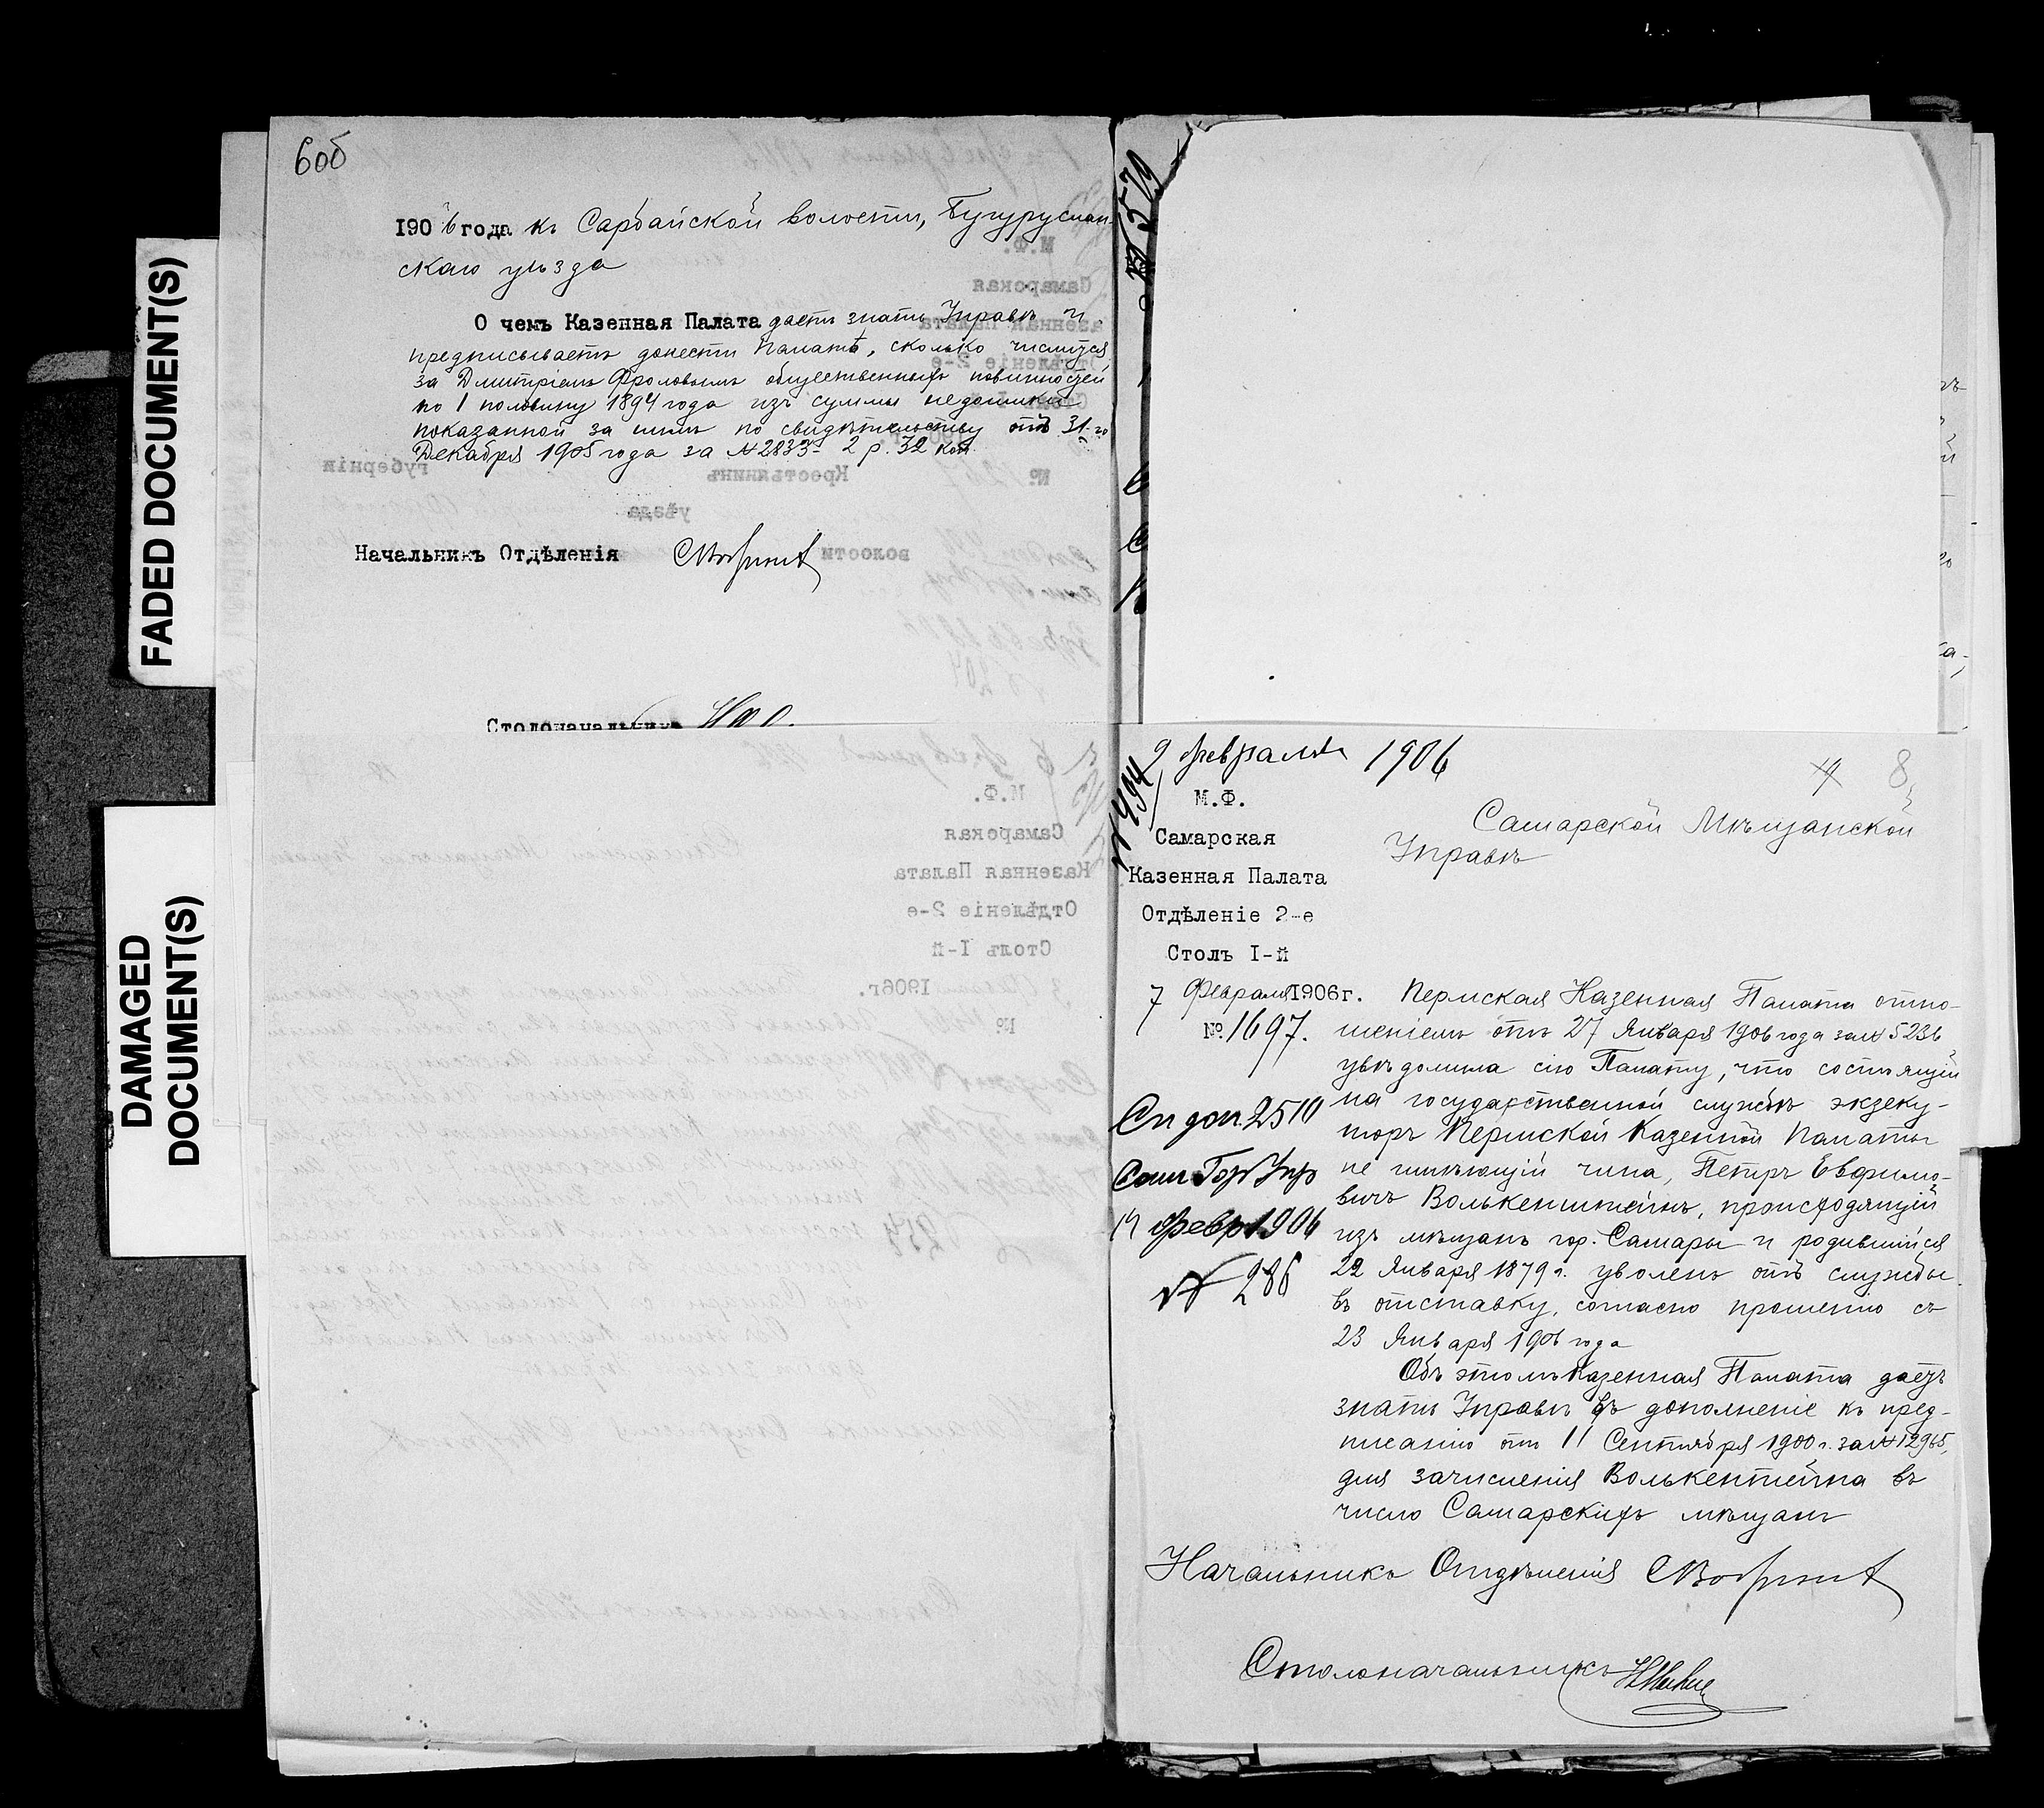 FADED DOCUMENT(S)
DAMAGED
DOCUMENT(S)
6об
1906 года къ Сарбайской волости, Бугуруслан-
скаго уѣзда
О чемъ Казенная Палата даетъ знать Управѣ и
предписываетъ донести Палатѣ, сколько числится
за Дмитріемъ Фроловымъ общественныхъ повинностей
по 1 половину 1894 года изъ суммы недоимки
показанной за нимъ по свидѣтельству отъ 31-го
Декабря 1905 года за № 2833 - 2 р. 32 коп.
Начальникъ Отдѣленія
Столоначальникъ
№ 570
№ 494
9 февраля 1906
8
М.Ф.
Самарская
Казенная Палата
Отдѣленіе 2-е
Столъ I-й
7 Февраля 1906г.
№ 1697.
Самарской Мѣщанской
Управѣ
Сп доп. 2510
Сам Гор Упр
14 февр 1906
№ 286
Пермская Казенная Палата отно-
шеніемъ отъ 27 Января 1906 года за № 5236
увѣдомила сію Палату, что состоящій
на государственной службѣ экзеку-
торъ Пермской Казенной Палаты
не имѣющій чина, Петръ Евфимо-
вичъ Волькенштейнъ, происходящій
изъ мѣщанъ гор. Самары и родившійся
22 Января 1879 г. уволенъ отъ службы
въ отставку, согласно прошенію съ
23 Января 1906 года
Объ этомъ Казенная Палата даетъ
знать Управѣ въ дополненіе къ пред-
писанію отъ 11 Сентября 1900 г. за № 12965,
для зачисленія Волькентейна въ
число Самарскихъ мѣщанъ
Начальникъ Отдѣленія
Столоначальникъ